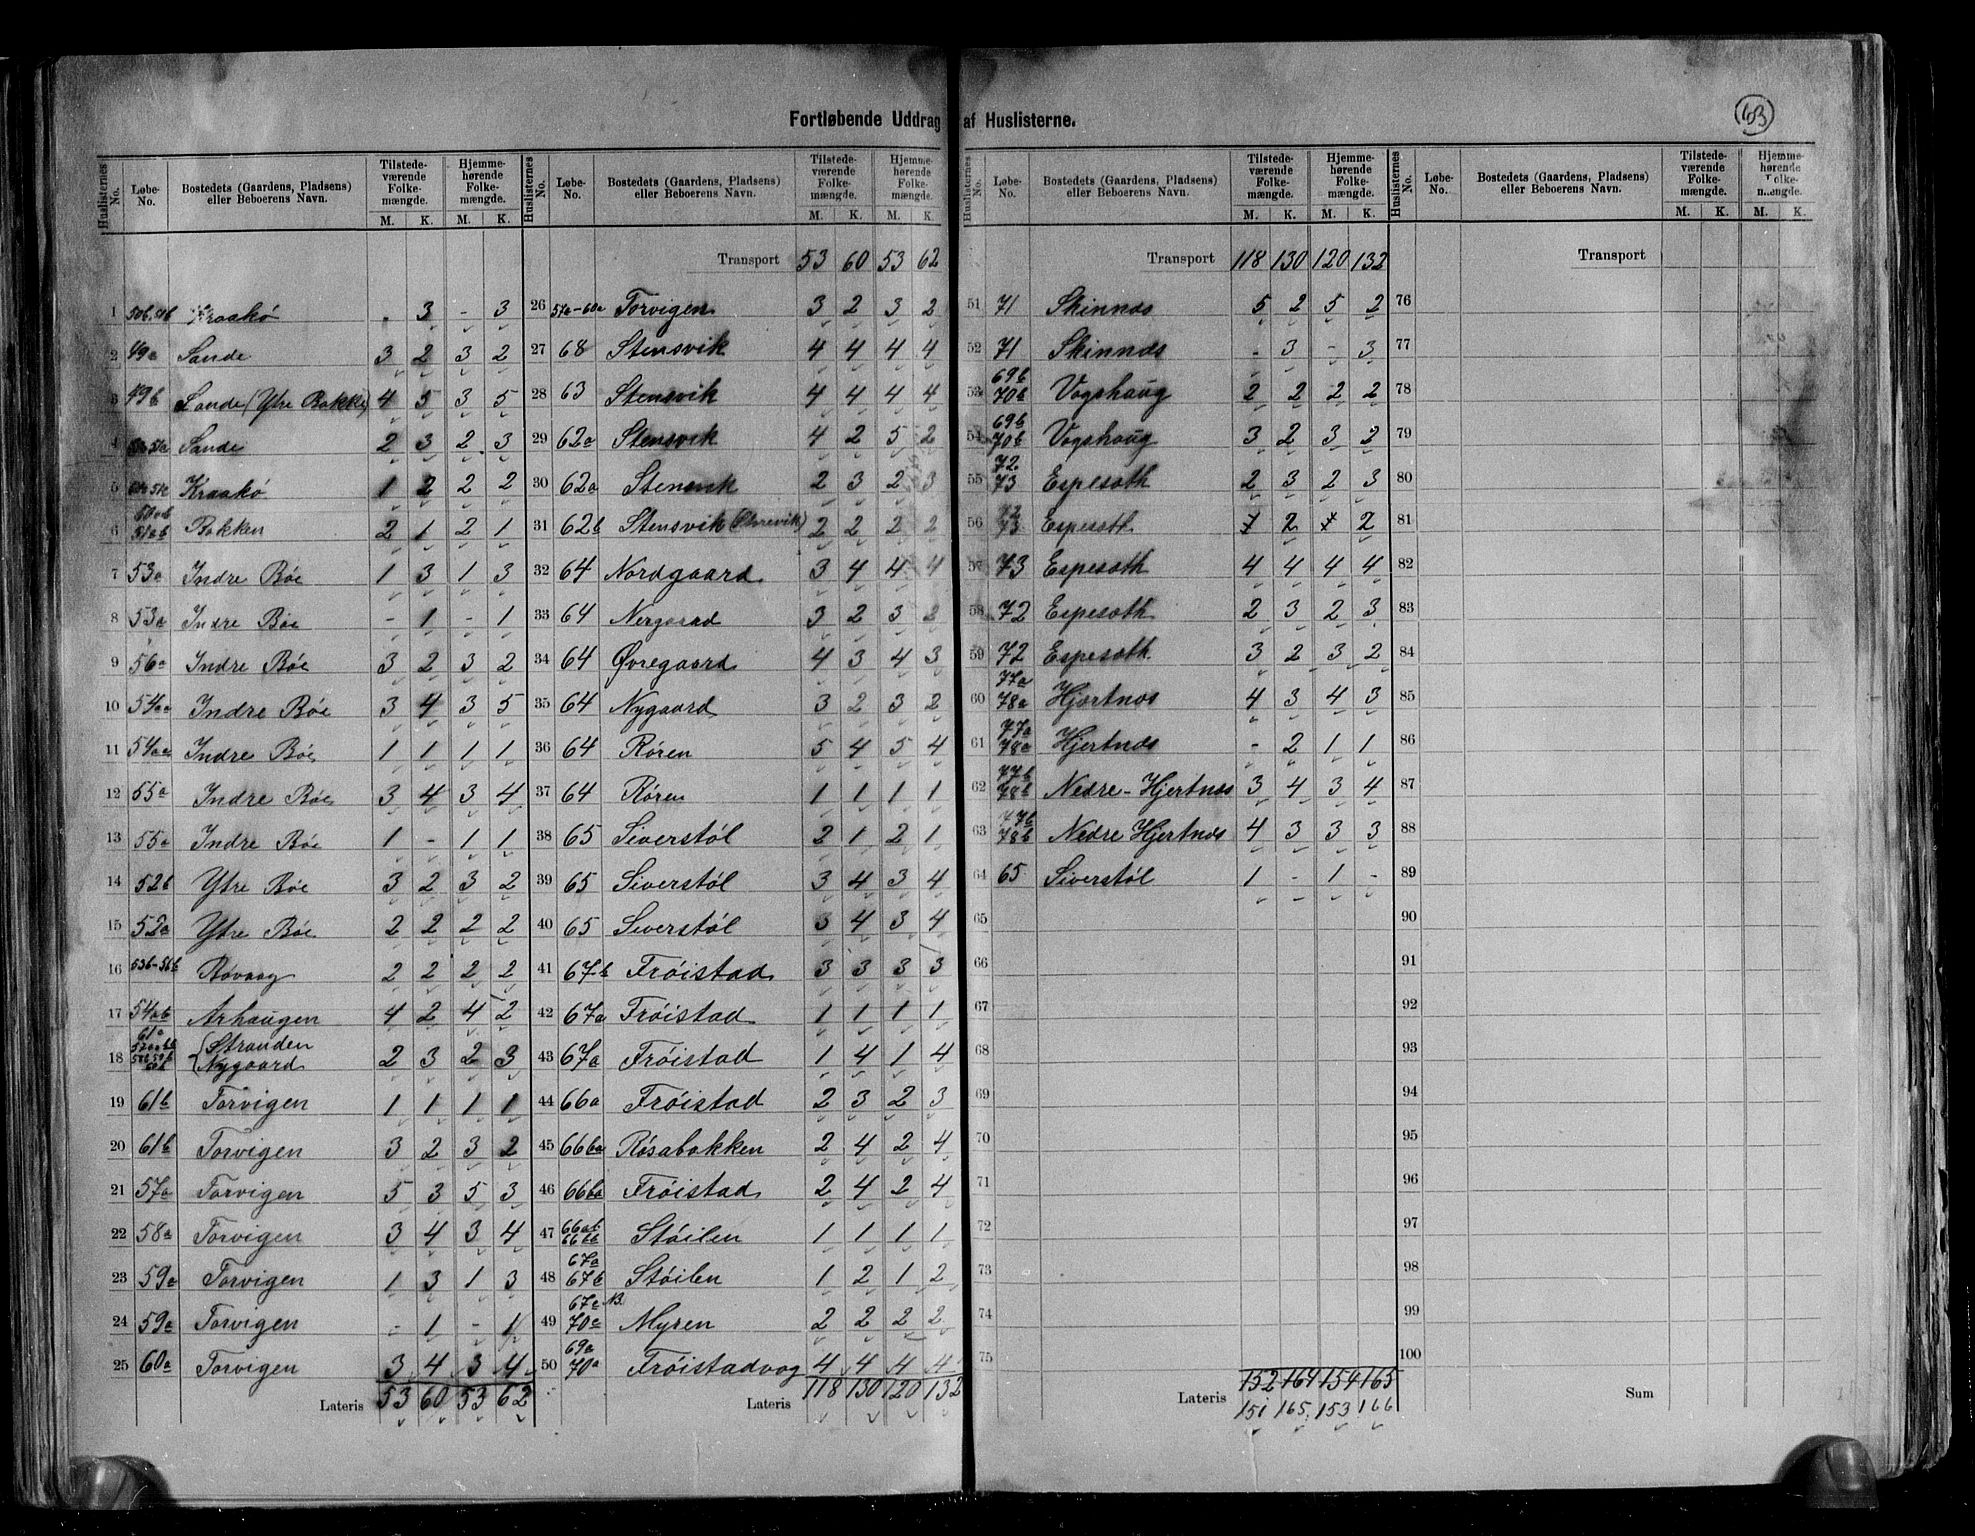 Fortløbende Uddrag af Huslisterne.
63
Huslisternes No. | Løbe-No. | Bostedets (Gaardens, Pladsens) eller Beboerens Navn. | Tilstedeværende Folkemængde. M. K. | Hjemmehørende Folkemængde. M. K.
1 Kraakö . 3 - 3
2 49a Sande 3 2 3 2
3 49b Sande (Ytre Bakke) 4 5 3 5
4 Sande 2 3 2 3
5 Kraakö 1 2 2 2
6 Bakken 2 1 2 1
7 53a Indre Böe 1 3 1 3
8 53a Indre Böe - 1 - 1
9 56a Indre Böe 3 2 3 2
10 54aa Indre Böe 3 4 3 5
11 54aa Indre Böe 1 1 1 1
12 55a Indre Böe 3 4 3 4
13 55a Indre Böe 1 - 1 1
14 52b Ytre Böe 3 2 3 2
15 52a Ytre Böe 2 2 2 2
16 53b-56b Bövaag 2 2 2 2
17 54ab Arhaugen 4 2 4 2
18 Stranden
Nygaard 2 3 2 3
19 61b Torvigen 1 1 1 1
20 61b Torvigen 3 2 3 2
21 57a Torvigen 5 3 5 3
22 58a Torvigen 3 4 3 4
23 59a Torvigen 1 3 1 3
24 59a Torvigen - 1 - 1
25 60a Torvigen 3 4 3 4
Lateris 53 60 53 62
Huslisternes No. | Løbe-No. | Bostedets (Gaardens, Pladsens) eller Beboerens Navn. | Tilstedeværende Folkemængde. M. K. | Hjemmehørende Folkemængde. M. K.
Transport 53 60 53 62
26 57a-60a Torvigen 3 2 3 2
27 68 Stensvik 4 4 4 4
28 63 Stensvik 4 4 4 4
29 62a Stensvik 4 2 5 2
30 62a Stensvik 2 3 2 3
31 62b Stensvik 2 2 2 2
32 64 Nordgaard 3 4 4 4
33 64 Nergaard 3 2 3 2
34 64 Øvregaard 4 3 4 3
35 64 Nygaard 3 2 3 2
36 64 Rören 5 4 5 4
37 64 Rören 1 1 1 1
38 65 Siverstöl 2 1 2 1
39 65 Siverstöl 3 4 3 4
40 65 Siverstöl 3 4 3 4
41 67b Fröistad 3 3 3 3
42 67a Fröistad 1 1 1 1
43 67a Fröistad 1 4 1 4
44 66a Fröistad 2 3 2 3
45 66ba Rösabakken 2 4 2 4
46 66ba Fröistad 2 4 2 4
47 66ab 66bb Stöilen 1 1 1 1
48 67a 67b Stöilen 1 2 1 2
49 67a NB. 70a Myren 2 2 2 2
50 69a 70a Fröistadvog 4 4 4 4
Lateris 118 130 120 132
Huslisternes No. | Løbe-No. | Bostedets (Gaardens, Pladsens) eller Beboerens Navn. | Tilstedeværende Folkemængde. M. K. | Hjemmehørende Folkemængde. M. K.
Transport 118 130 120 132
51 71 Skinnæs 5 2 5 2
52 71 Skinnæs - 3 - 3
53 69b 70b Vogshaug 2 2 2 2
54 69b 70b Vogshaug 3 2 3 2
55 72. 73 Espesæth 2 3 2 3
56 72 73 Espesæth 2 2
57 73 Espesæth 4 4 4 4
58 72 Espesæth 2 3 2 3
59 72 Espesæth 3 2 3 2
60 77a 78a Hjertnæs 4 3 4 3
61 77a 78a Hjertnæs - 2 1 1
62 77b 78b Nedre-Hjertnæs 3 4 3 4
63 77b 78b Nedre Hjertnæs 4 3 3 3
64 65 Siverstöl 1 - 1 -
65
66
67
68
69
70
71
72
73
74
75
152 164 154 165
Lateris 151 165. 153 166
Huslisternes No. | Løbe-No. | Bostedets (Gaardens, Pladsens) eller Beboerens Navn. | Tilstedeværende Folkemængde. M. K. | Hjemmehørende Folkemængde. M. K.
Transport
76
77
78
79
80
81
82
83
84
85
86
87
88
89
90
91
92
93
94
95
96
97
98
99
100
Sum